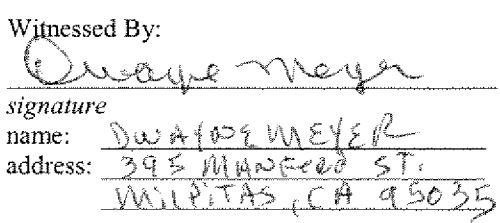 Witnessed By:
Dwayne Meyer
signature
name: DWAYNE MEYER
address: 395 MANFERD ST.
MILPITAS, CA 95035